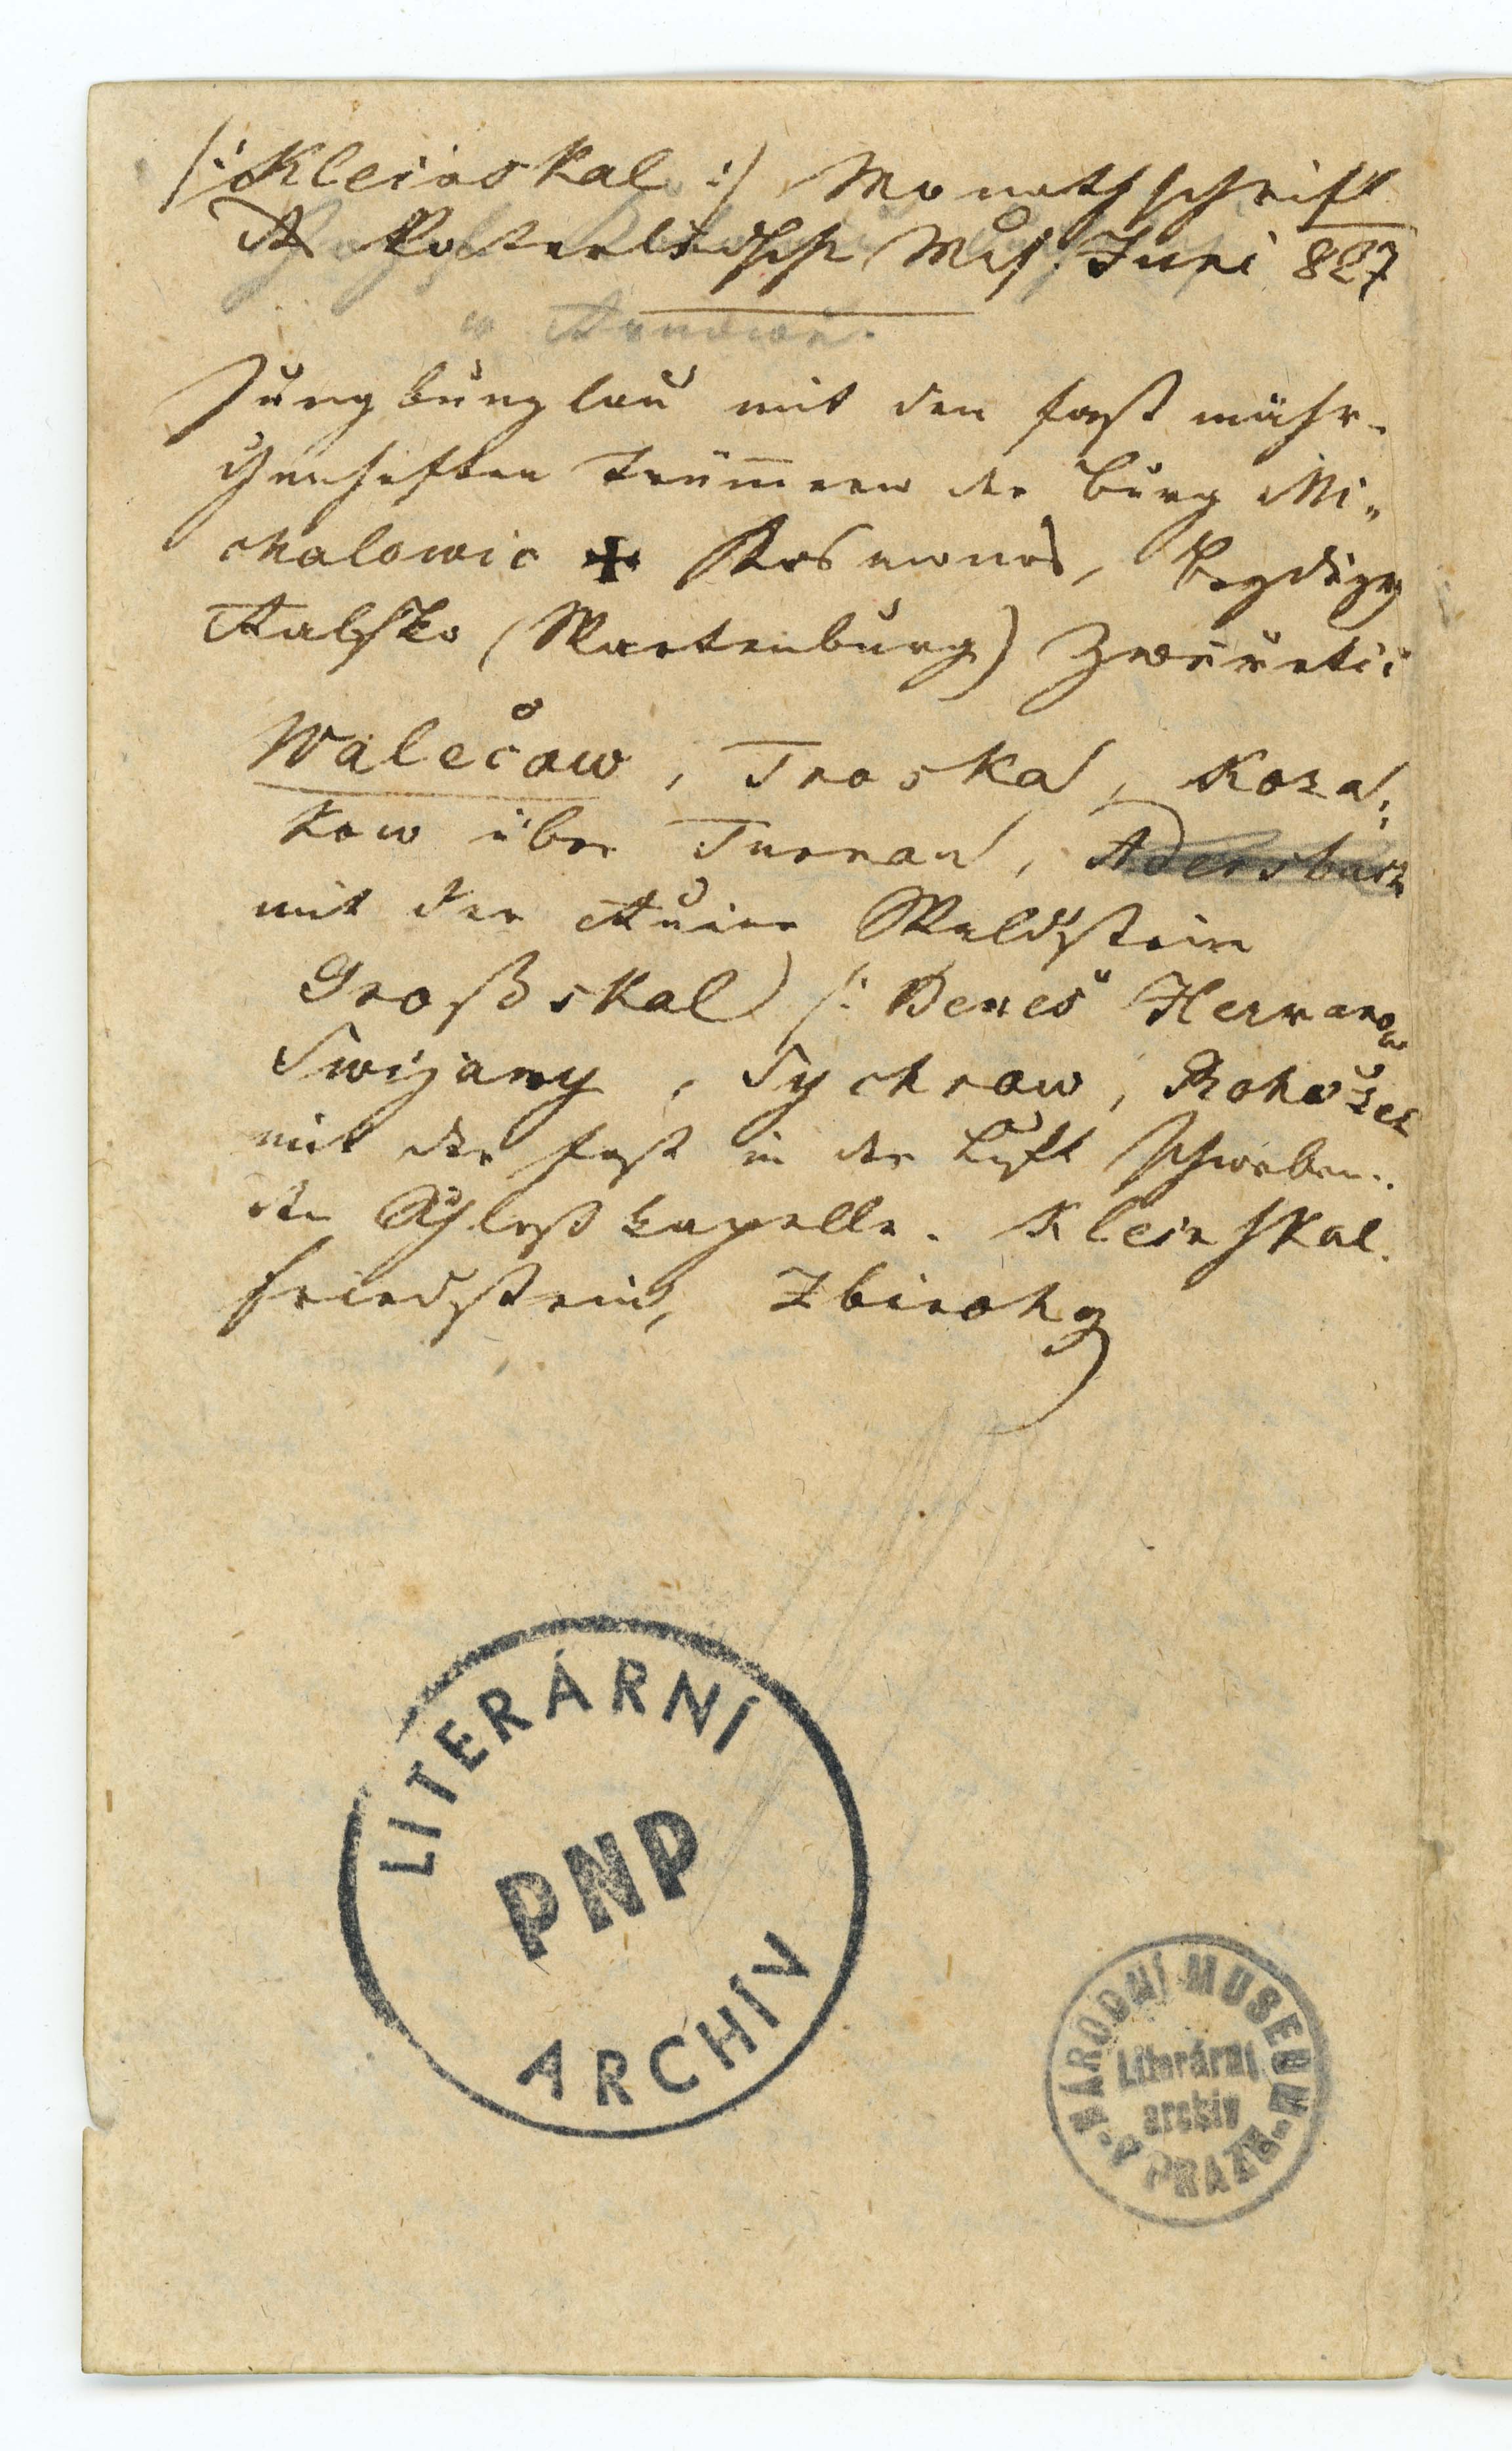 /: Kleinskal :/ Monathschrift
d vaterländsch Mus. Juni 827
Jungbunzlau mit den fast mähr-
chenhaften Trüm̄ern der Burg Mi„
chalowic ✠ Kosmonos,
Ralsko (Wartenburg) Zwiřetic
Walečow, Troska, Koza„
kow über Turnau, Adersbach
mit der Ruine Waldstein
Großskal /: Beneš Herman
Swijany, Sychrow, Rohozec
mit der fast in der Luft schweben„
den Schloßkapelle. Kleinskal.
Friedstein, Zbiroh
LITERÁRNÍ
PNP
ARCHIV
NÁRODNÍ MUSEUM
Literární
archiv
V PRAZE